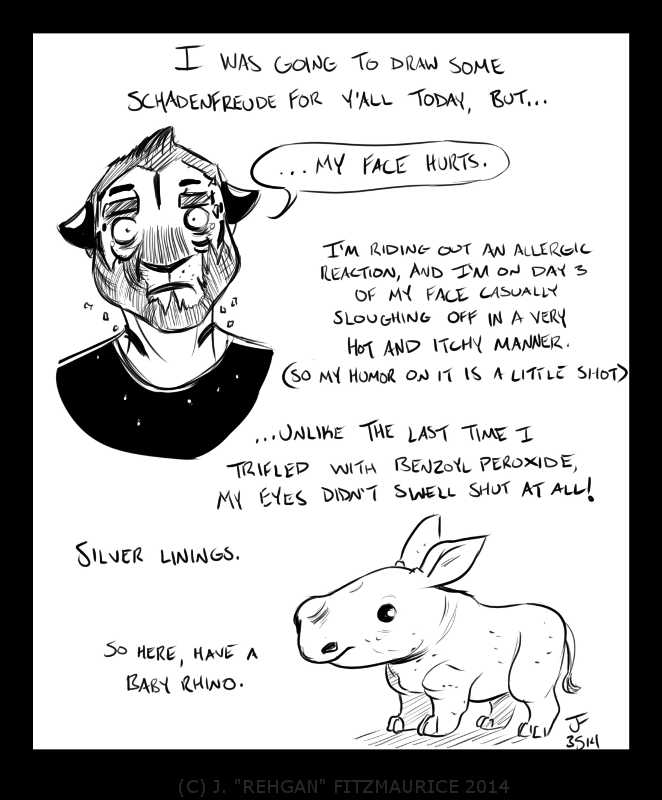 I WAS GOING TO DRAW SOME
SCHADENFREUDE FOR Y'ALL TODAY, BUT...
...MY FACE HURTS.
I'M RIDING OUT AN ALLERGIC
REACTION, AND I'M ON DAY 3
OF MY FACE CASUALLY
SLOUGHING OFF IN A VERY
HOT AND ITCHY MANNER.
(SO MY HUMOR ON IT IS A LITTLE SHOT)
...UNLIKE THE LAST TIME I
TRIFLED WITH BENZOYL PEROXIDE,
MY EYES DIDN'T SWELL SHUT AT ALL!
SILVER LININGS.
SO HERE, HAVE A
BABY RHINO.
JF
3514
(C) J. "REHGAN" FITZMAURICE 2014